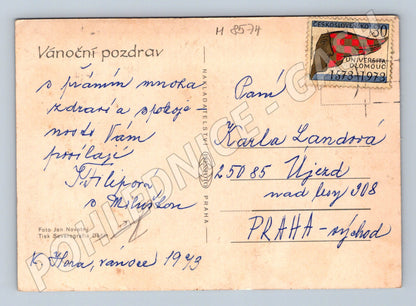 Vánoční pozdrav
H 8574
s přáním mnoha
zdraví a spokoje
nosti Vám
posílají
Filipova
s Miluškou
K. Hora, vánoce 1973
Foto Jan Novotný
Tisk Severografia Děčín
NAKLADATELSTVÍ
PRAHA
ČESKOSLOVENSKO
30
UNIVERSITA
OLOMOUC
1573-1973
Paní
Karla Landová
250 85 Újezd
nad lesy 908
PRAHA-východ
POHLEDNICE - GASH